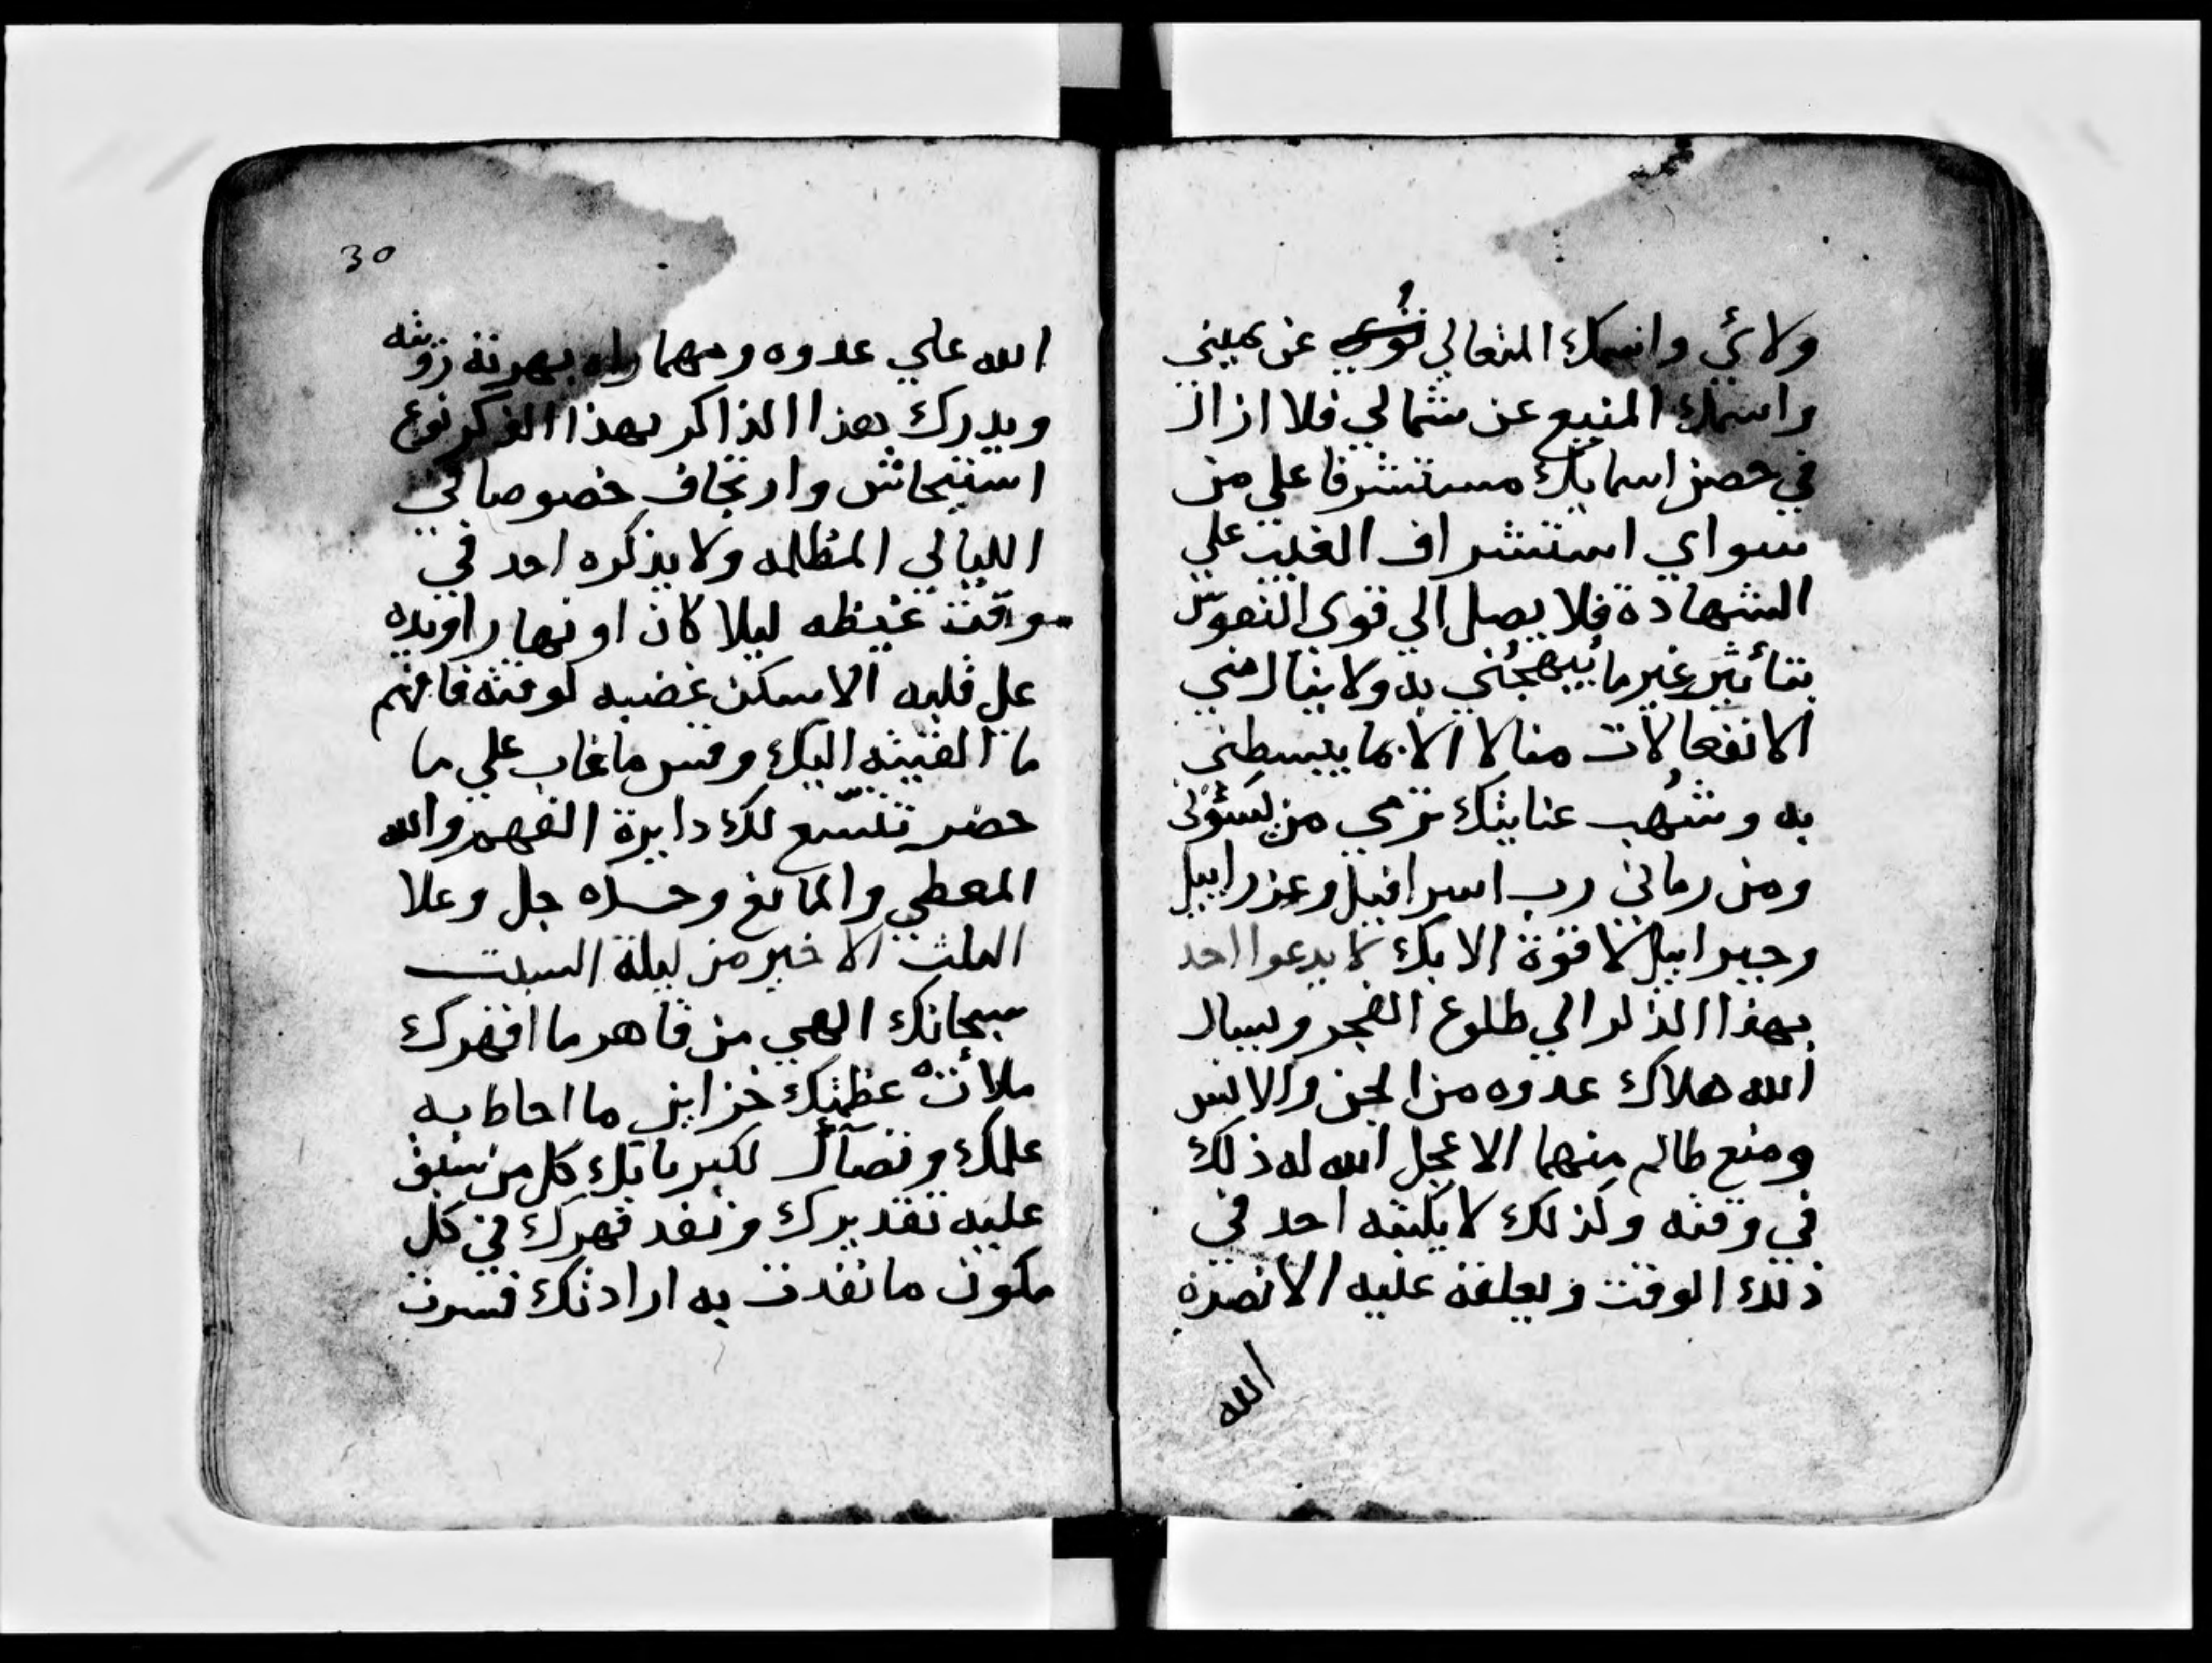 ولائي واسمك المتعالي عن يميني
واسمك المنيع عن شمالي فلا ازال
في حصن اسمايك مستشرفا علي من
سواي استشراف الغيب علي
الشهادة فلا يصل الي قوي النفوس
بتأثير غير ما يُبهجُني به ولا ينال مني
الانفعالات منالا الا بما يبسطني
به وشُهب عنايتك ترمي من
ومن رماني رب اسرافيل وعزراييل
وجبراييل لا قوة الا بك لا يدعوا احد
بهذا الذكر الي طلوع الفجر ويسال
الله هلاك عدوه من الجن والانس
ومنع ظالم منهما الا عجل الله له ذلك
في وقته وكذلك لا يكتبه احد في
ذلك الوقت ويعلقه عليه الا نصره
الله
30
الله علي عدوه ومهما راه بهرته رؤيته
ويدرك بهذا الذاكر بهذا الذكر نوع
استيحاش وارتجاف خصوصا في
الليالي المظلمه ولا يذكره احد في
وقت غيظه ليلا كان او نهارا ويده
علي قلبه الا سكن غضبه لوقته فافهم
ما القيته اليك وقس ما غاب علي ما
حضر تتسع لك دايرة الفهم والله
المعطي والمانع وحده جل وعلا
الثلث الاخير من ليلة السبت
سبحانك الهي من قاهر ما اقهرك
ملأت عظمتك خزاين ما احاط به
علمك وتضآل لكبريايك كل من سبق
عليه تقديرك ونفد قهرك في كل
مكون ما نفدت به ارادتك فسرت